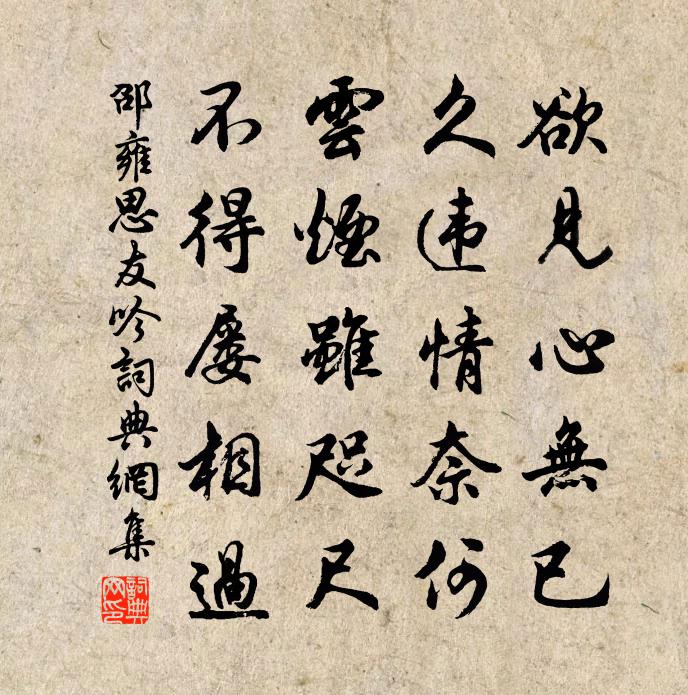 欲見心無已
久违情奈何
雲煙雖咫尺
不得屡相過
邵雍思友吟詞典網集
詞典
網印